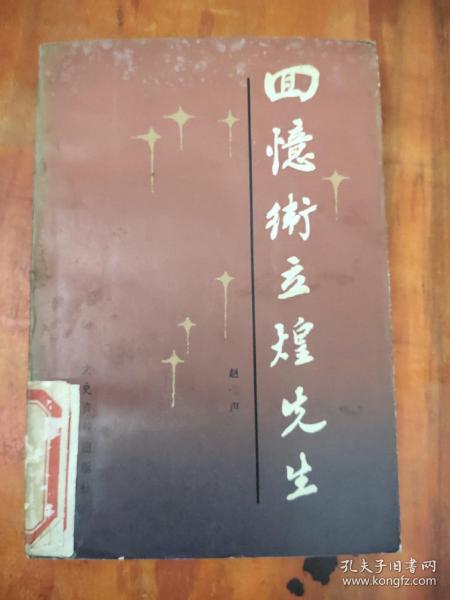 回憶衛立煌先生
赵 声
文史资料出版社
孔夫子旧书网
www.kongfz.com